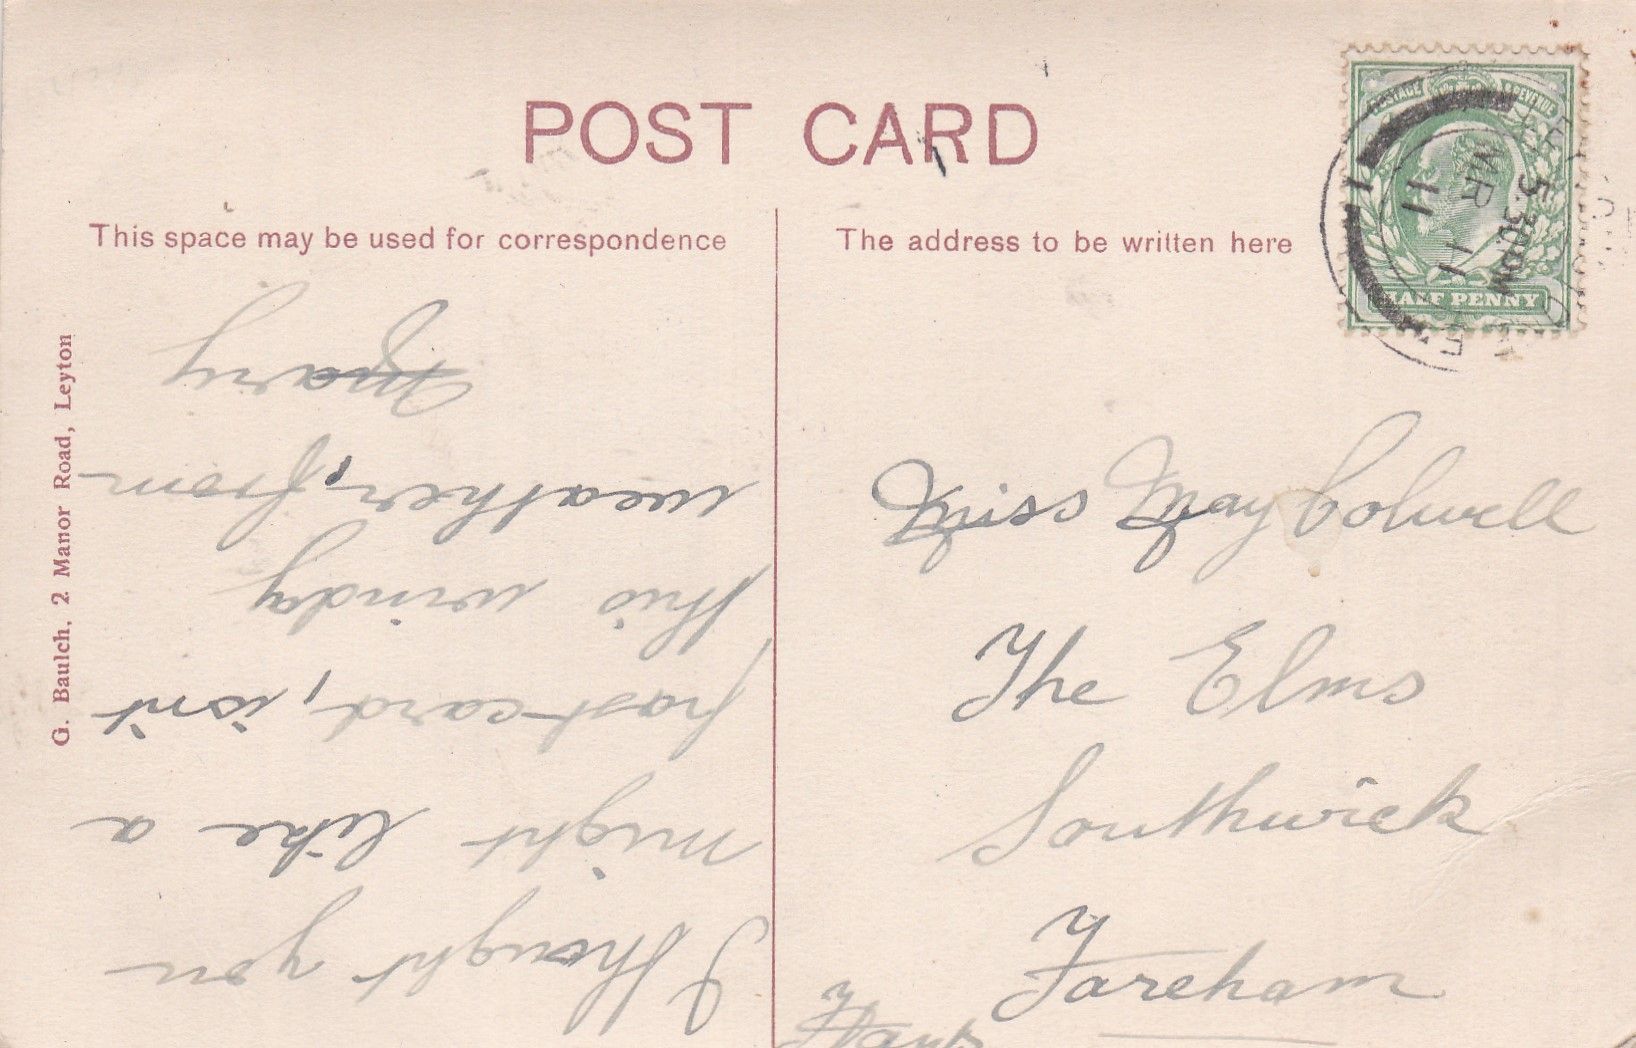 POST CARD
This space may be used for correspondence
The address to be written here
G. Baulch, 2 Manor Road, Leyton
POSTAGE REVENUE
HALF PENNY
5.30PM
MR 11
11
I thought you
might like a
post-card, isn't
this windy
weather, from
Mary
Miss May Colwell
The Elms
Southwick
Fareham
Hants